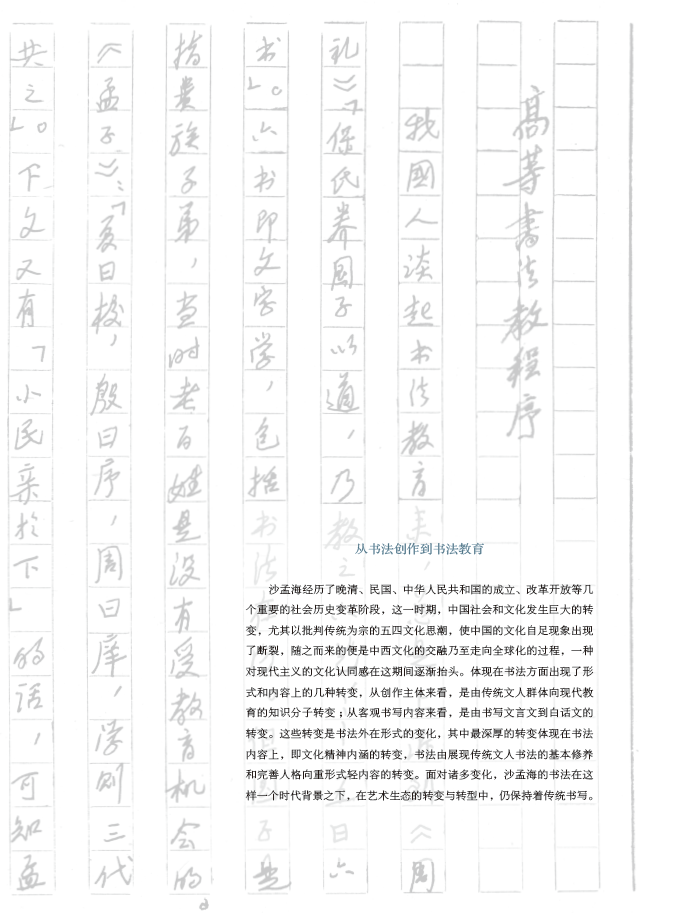 高等書法教程序
我國人談起书法教育来，《周
礼》「保氏养國子以道，乃教之曰六
书」。六书即文字学，包括书法子是
指貴族子弟，当时老百姓是没有受教育机会的
《孟子》：「夏曰校，殷曰序，周曰庠，学则三代
共之」。下文又有「小民亲於下」的话，可知孟
从书法创作到书法教育
沙孟海经历了晚清、民国、中华人民共和国的成立、改革开放等几
个重要的社会历史变革阶段，这一时期，中国社会和文化发生巨大的转
变，尤其以批判传统为宗的五四文化思潮，使中国的文化自足现象出现
了断裂，随之而来的便是中西文化的交融乃至走向全球化的过程，一种
对现代主义的文化认同感在这期间逐渐抬头。体现在书法方面出现了形
式和内容上的几种转变，从创作主体来看，是由传统文人群体向现代教
育的知识分子转变；从客观书写内容来看，是由书写文言文到白话文的
转变。这些转变是书法外在形式的变化，其中最深厚的转变体现在书法
内容上，即文化精神内涵的转变，书法由展现传统文人书法的基本修养
和完善人格向重形式轻内容的转变。面对诸多变化，沙孟海的书法在这
样一个时代背景之下，在艺术生态的转变与转型中，仍保持着传统书写。